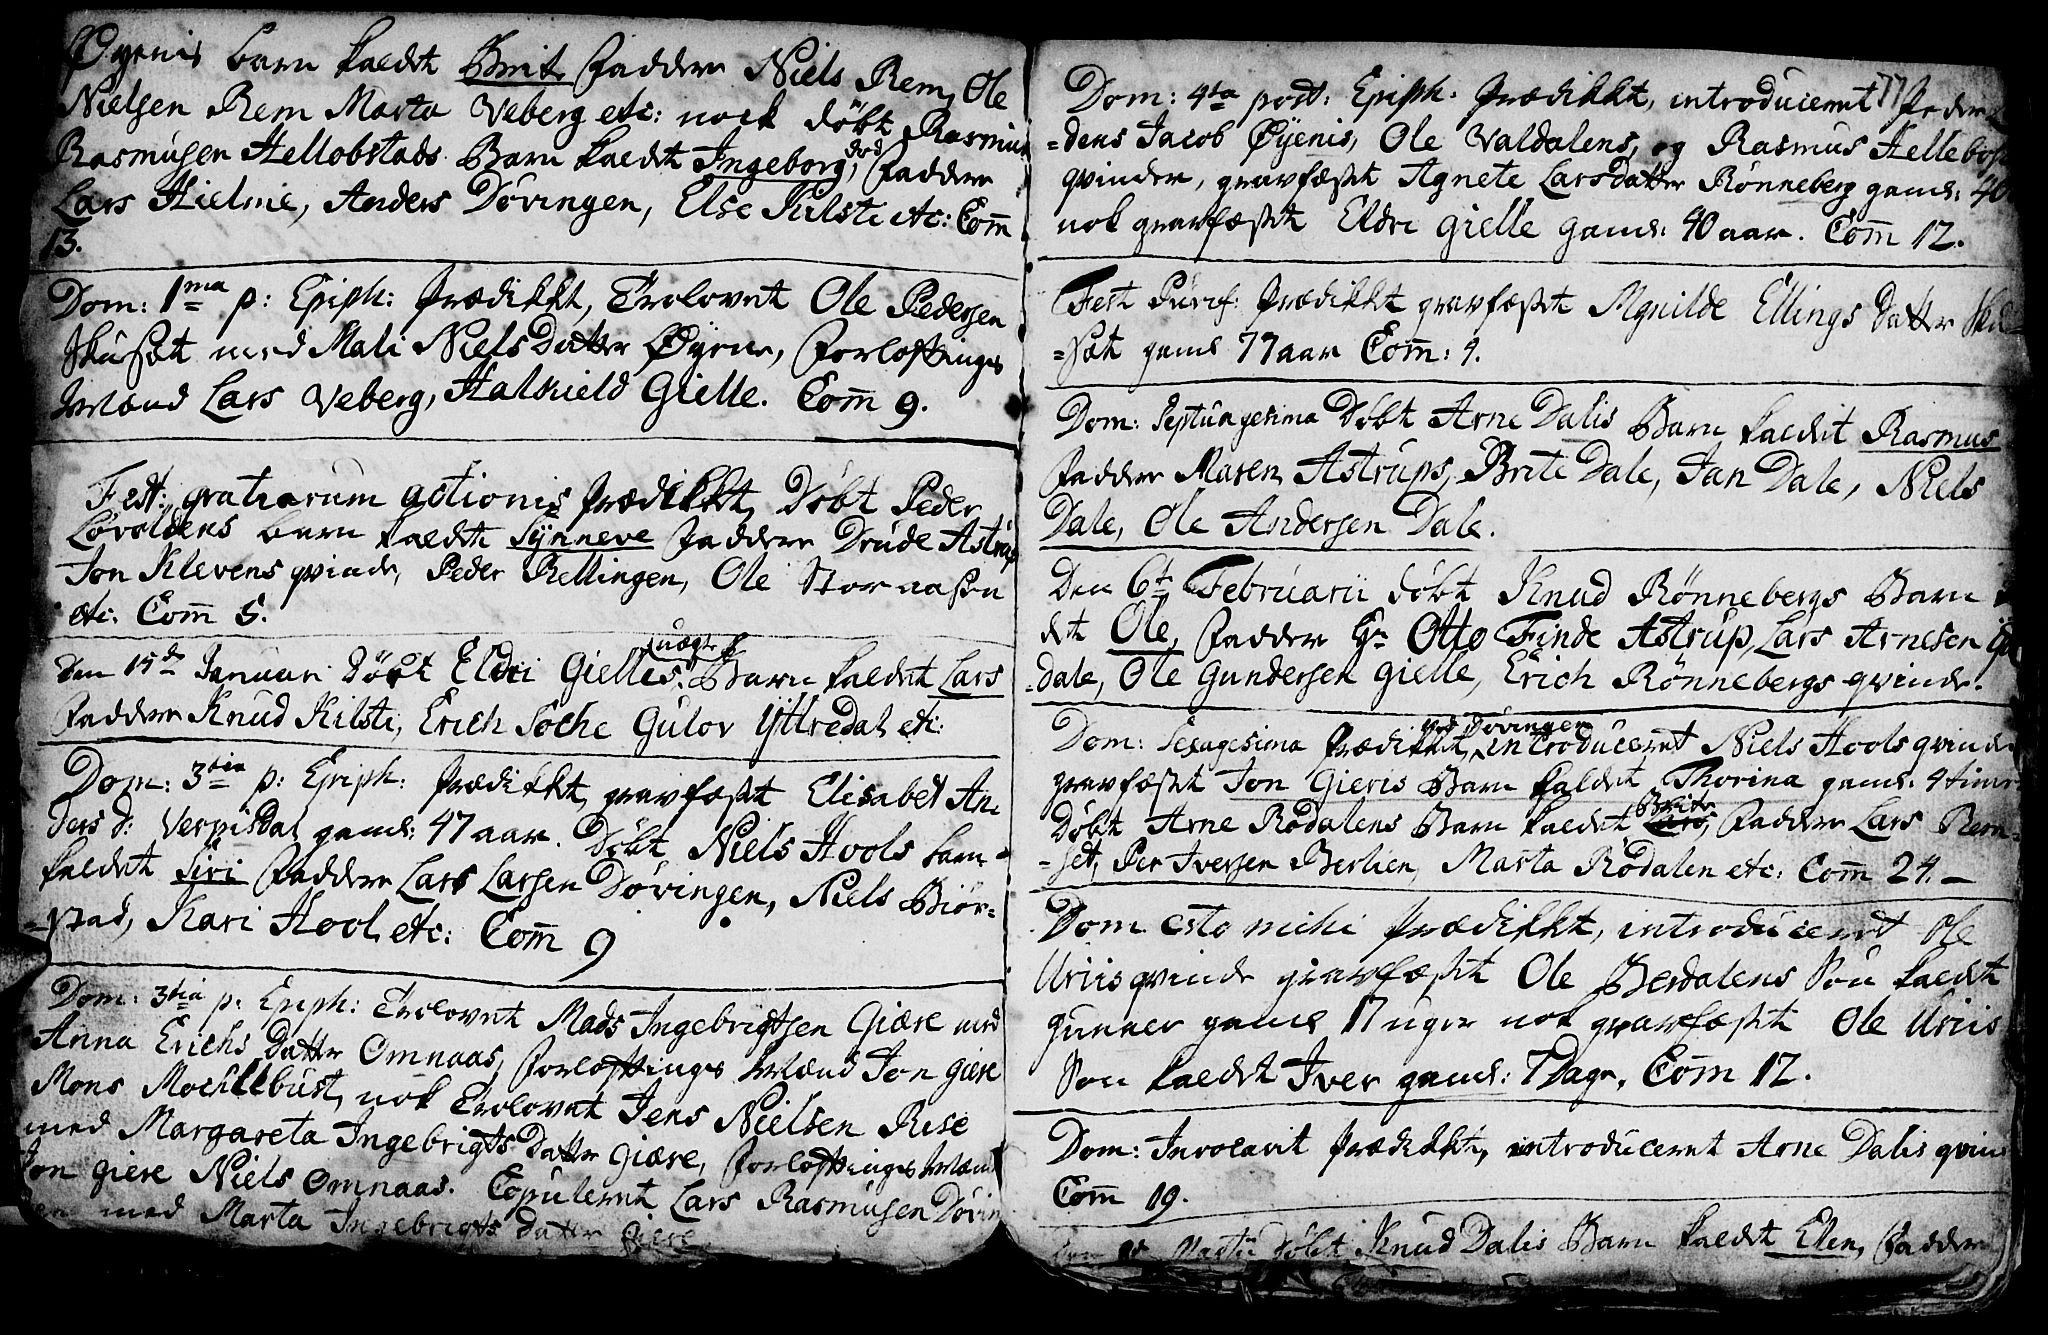 Øyenis barn kaldet Brit fadder Niels Rem, Ole
Nielsen Rem Marta Veberg etc: nock døbt Rasmus
Rasmusen Hellobstads Barn kaldet Ingeborg, fadder
Lars Hielme, Anders Døvingen, Else Kilsti etc: Com̄
13.
Dom: 1ma p: Epiph: prædikkt, Trolovet Ole Pedersen
Skusæt med Mali Niels Datter Øyene, forloftings
Mænd Lars Veberg, Halkield Gielle. Com̄ 9.
Fest: gratiarum actionis prædikkt, Døbt Peder
Løvoldens barn kaldet Synneve fadder Drude Astrup
Jon Klevens qvinde, Peder Rellingen, Ole Stornasen
etc. Com̄ 5.
den 15de Januari døbt Eldri Gielles Barn kaldet Lars
fadder Knud Kilsti, Erich Soche Gulov Yttredal etc:
Dom: 3tia p: Epiph: prædikkt, gravfæstet Elisabet An
ders d: Verpisdal gaml: 47 aar. Døbt Niels Hools barn
kaldet Siri fadder Lars Larsen Døvingen, Niels Biør=
=stad, Kari Hool, etc: Com̄ 9
Dom: 3tia p. Epiph: Trolovet Mads Ingebrigtsen Giære med
Anna Erichs Datter Omnaas, forloftings Mænd Jon giere
Mons Mochlebust, nok Trolovet Jens Nielsen Rise
med Margareta Ingebrigts Datter Giære, forloftings Mænd
Jon giere Niels Omnaas. Copuleret Lars Rasmusen Døvin
med Marta Ingebrigts datter Giere
77
Dom: 4ta post: Epiph: prædikkt, introduceret Peder
=dens Jacob Øyenis, Ole Valdalens, og Rasmus Hellebost
qvinder, gravfæstet Agnete Larsdatter Rønneberg gaml: 40
nok gravfæstet Eldri gielle gaml: 40 aar. Com̄ 12.
Fest Purif: prædikkt gravfæstet Mgnilde Ellings datter Sku=
=sæt gaml 77 aar Com̄: 9.
Dom: Septuagesima Døbt Arne Dalis Barn kaldet Rasmus
fadder Maren Astrups, Brite Dale, Jan Dale, Niels
Dale, Ole Andersen Dale.
Den 6te Februarii døbt Knud Rønnebergs Barn
det Ole, fadder Hr Otto Finde Astrup, Lars Arnesen
=dale, Ole Gundersen gielle, Erich Rønnebergs qvinde.
Dom: Sexagesima prædikkt, ved Døvingen introduceret Niels Hools qvinde
gravfæstet Jon Gieris Barn kaldet Thorina gaml: 4 timer
Døbt Arne Rødalens Barn kaldet Brite, fadder Lars Rem=
=set, Per Iversen Berlien, Marta Rødalen etc: Com̄ 24.
Dom esto mihi prædikkt, introduceret Ole
Uriis qvinde gravfæstet Ole Berdalens Søn kaldet
Gunner gaml 17 uger nok gravfæstet Ole Uriis
Søn kaldet Iver gaml: 7 Dage. Com̄ 12.
Dom: Invocavit prædikkt, introduceret Arne Dalis qvin
Com̄ 19.
den Martii døbt Knud Dalis Barn kaldet Elen, fadder